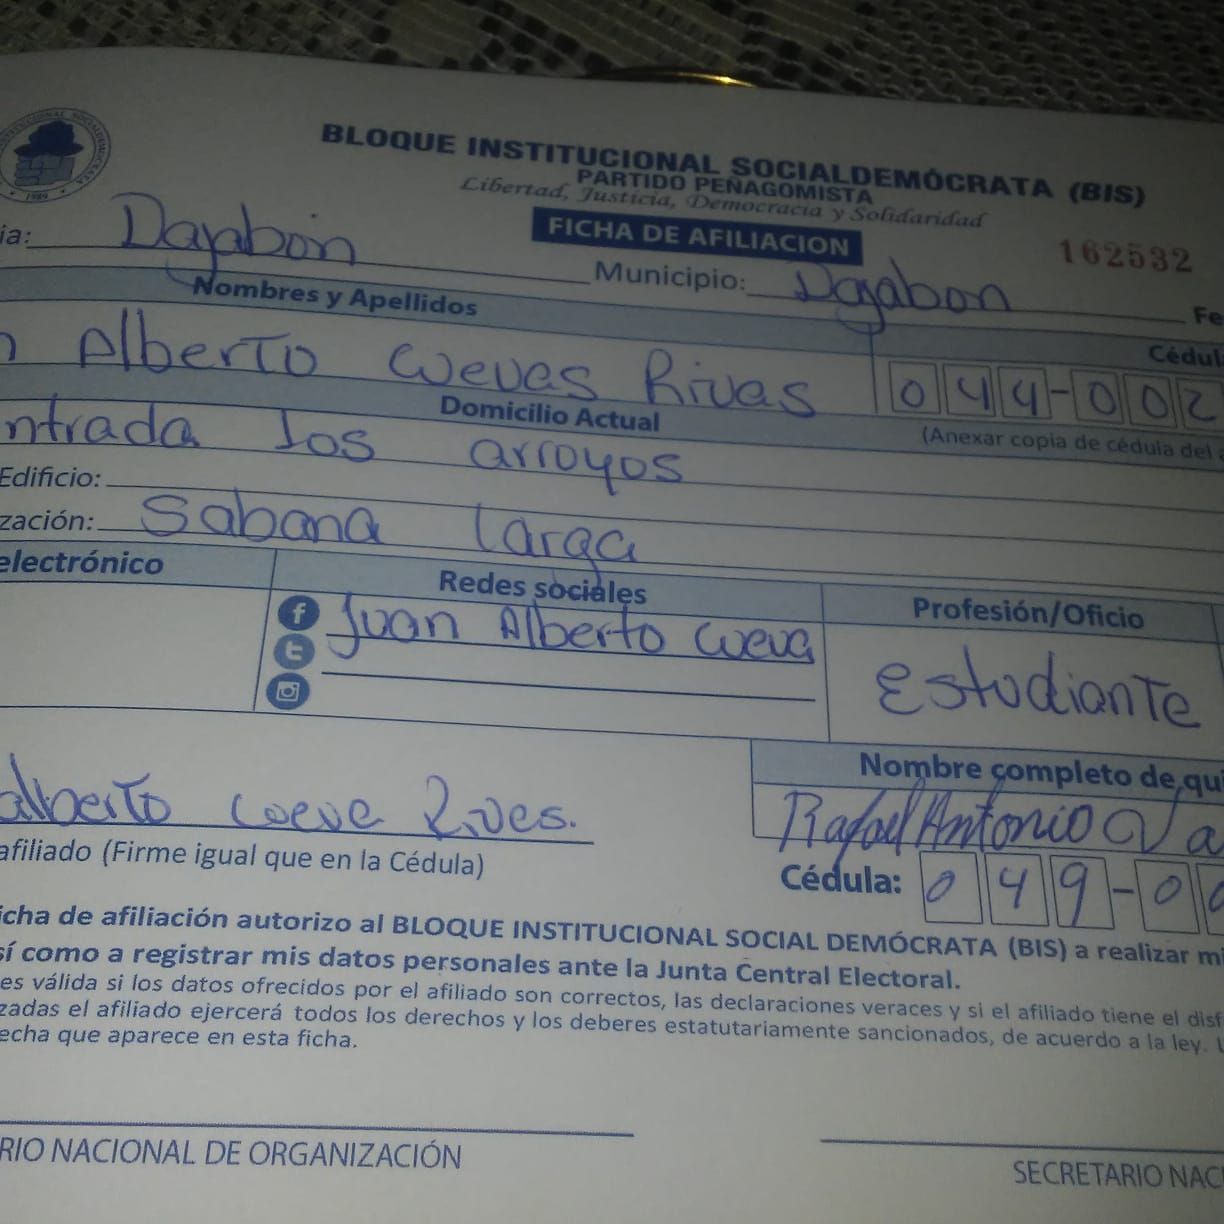 BLOQUE INSTITUCIONAL SOCIALDEMÓCRATA (BIS)
PARTIDO PEÑAGOMISTA
Libertad, Justicia, Democracia y Solidaridad
FICHA DE AFILIACION
162532
1989
ia: Dajabon Municipio: Dajabon Fe
Nombres y Apellidos Cédul
n Alberto Cuevas Rivas 044-002
Domicilio Actual (Anexar copia de cédula del
ntrada los arroyos
Edificio:
zación: Sabana Larga
electrónico Redes sociales Profesión/Oficio
Juan Alberto Cueva Estudiante
Nombre completo de qui
alberto Cueva Rives. Rafael Antonio Va
afiliado (Firme igual que en la Cédula) Cédula: 049-00
icha de afiliación autorizo al BLOQUE INSTITUCIONAL SOCIAL DEMÓCRATA (BIS) a realizar mi
sí como a registrar mis datos personales ante la Junta Central Electoral.
es válida si los datos ofrecidos por el afiliado son correctos, las declaraciones veraces y si el afiliado tiene el disf
zadas el afiliado ejercerá todos los derechos y los deberes estatutariamente sancionados, de acuerdo a la ley. L
echa que aparece en esta ficha.
RIO NACIONAL DE ORGANIZACIÓN SECRETARIO NACI